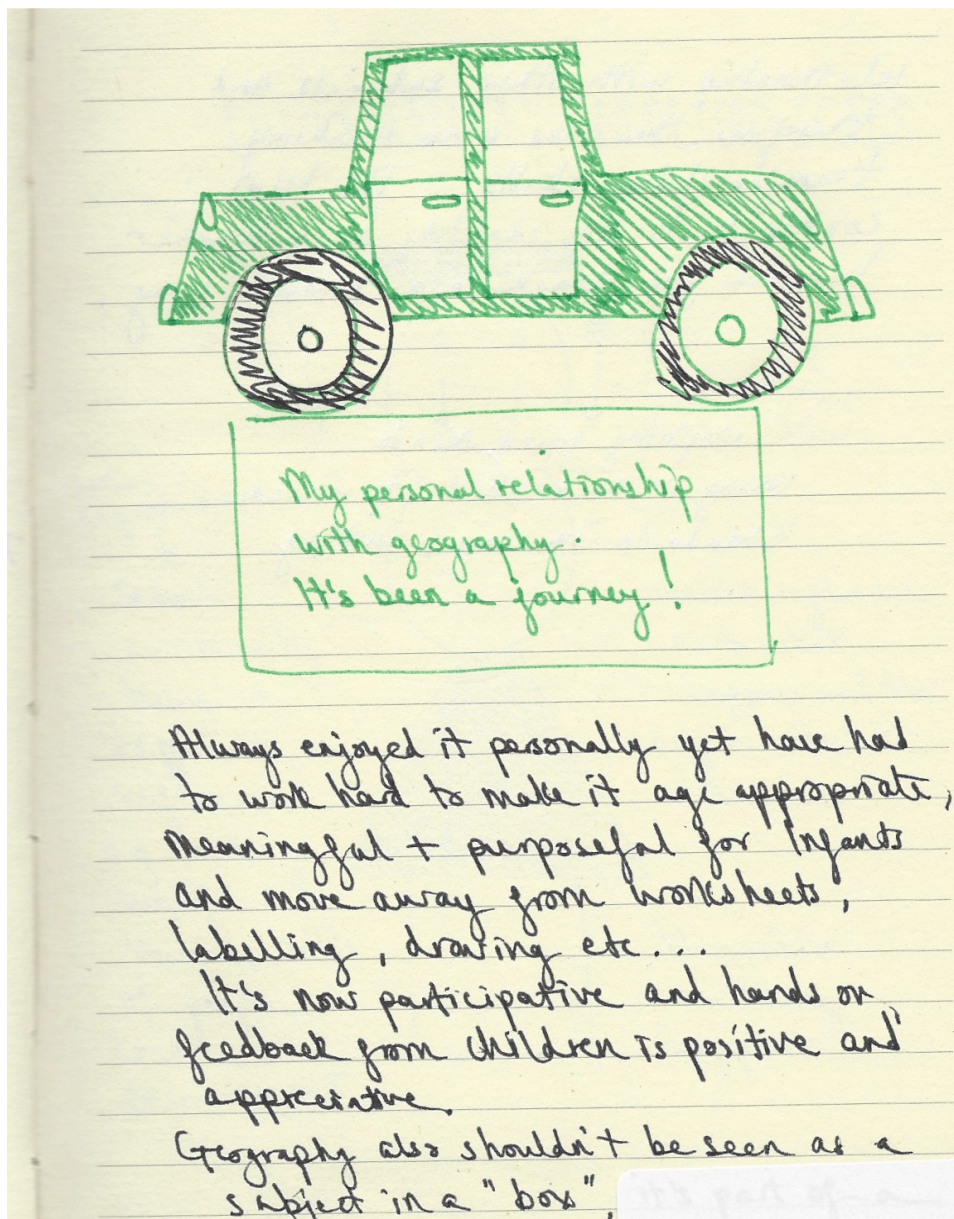 My personal relationship
with geography.
It's been a journey!
Always enjoyed it personally yet have had
to work hard to make it age appropriate,
meaningful + purposeful for Infants
and move away from worksheets,
labelling, drawing etc...
It's now participative and hands on,
feedback from children is positive and
appreciative.
Geography also shouldn't be seen as a
subject in a "box",